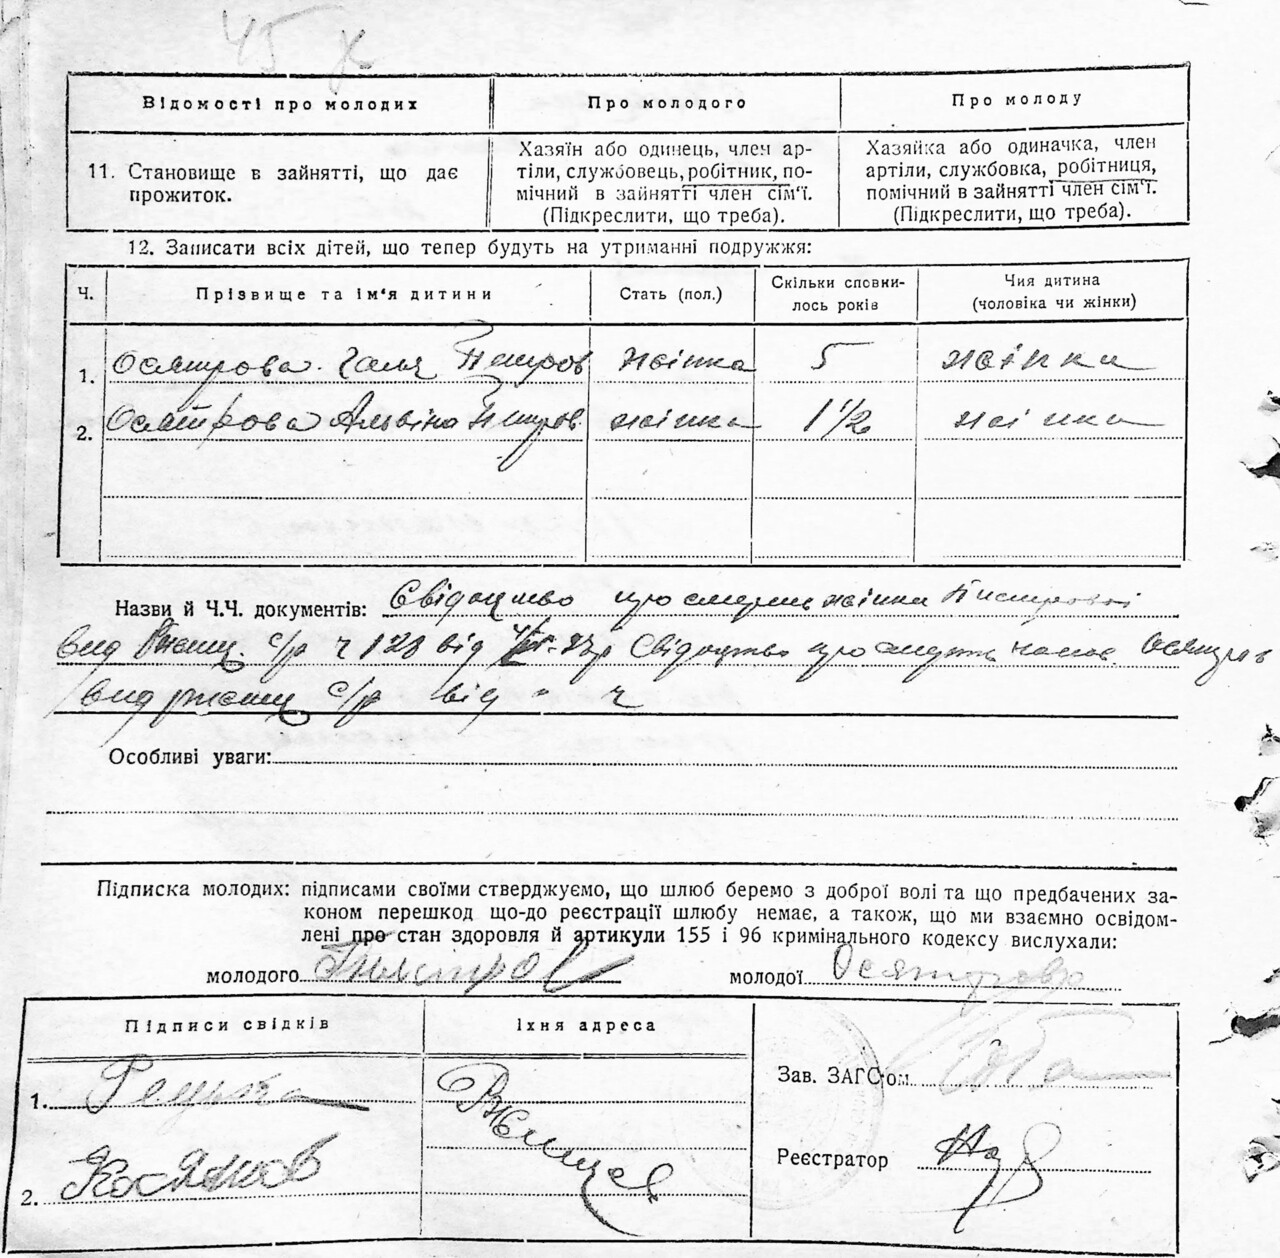 45
Відомості про молодих Про молодого Про молоду
11. Становище в зайнятті, що дає прожиток.
Хазяїн або одинець, член ар-
тіли, службовець, робітник, по-
мічний в зайнятті член сім'ї.
(Підкреслити, що треба).
Хазяйка або одиначка, член
артіли, службовка, робітниця,
помічний в зайнятті член сім'ї.
(Підкреслити, що треба).
12. Записати всіх дітей, що тепер будуть на утриманні подружжя:
Ч. Прізвище та ім'я дитини Стать (пол.) Скільки сповни-лось років Чия дитина (чоловіка чи жінки)
1. Осятрова Галя жінка 5 жінки
2. Осятрова Альвіна жінка 1 1/2 жінка
Назви й Ч.Ч. документів: Свідоцтво про смерть жінки
вид с/р ч 123 від Свідоцтво про смерть
вид с/р від ч
Особливі уваги:
Підписка молодих: підписами своїми стверджуємо, що шлюб беремо з доброї волі та що предбачених за-
коном перешкод що-до реєстрації шлюбу немає, а також, що ми взаємно освідом-
лені про стан здоровля й артикули 155 і 96 кримінального кодексу вислухали:
молодого молодої Осятрова
Підписи свідків Їхня адреса
Зав. ЗАГС'ом
1.
Реєстратор
2.